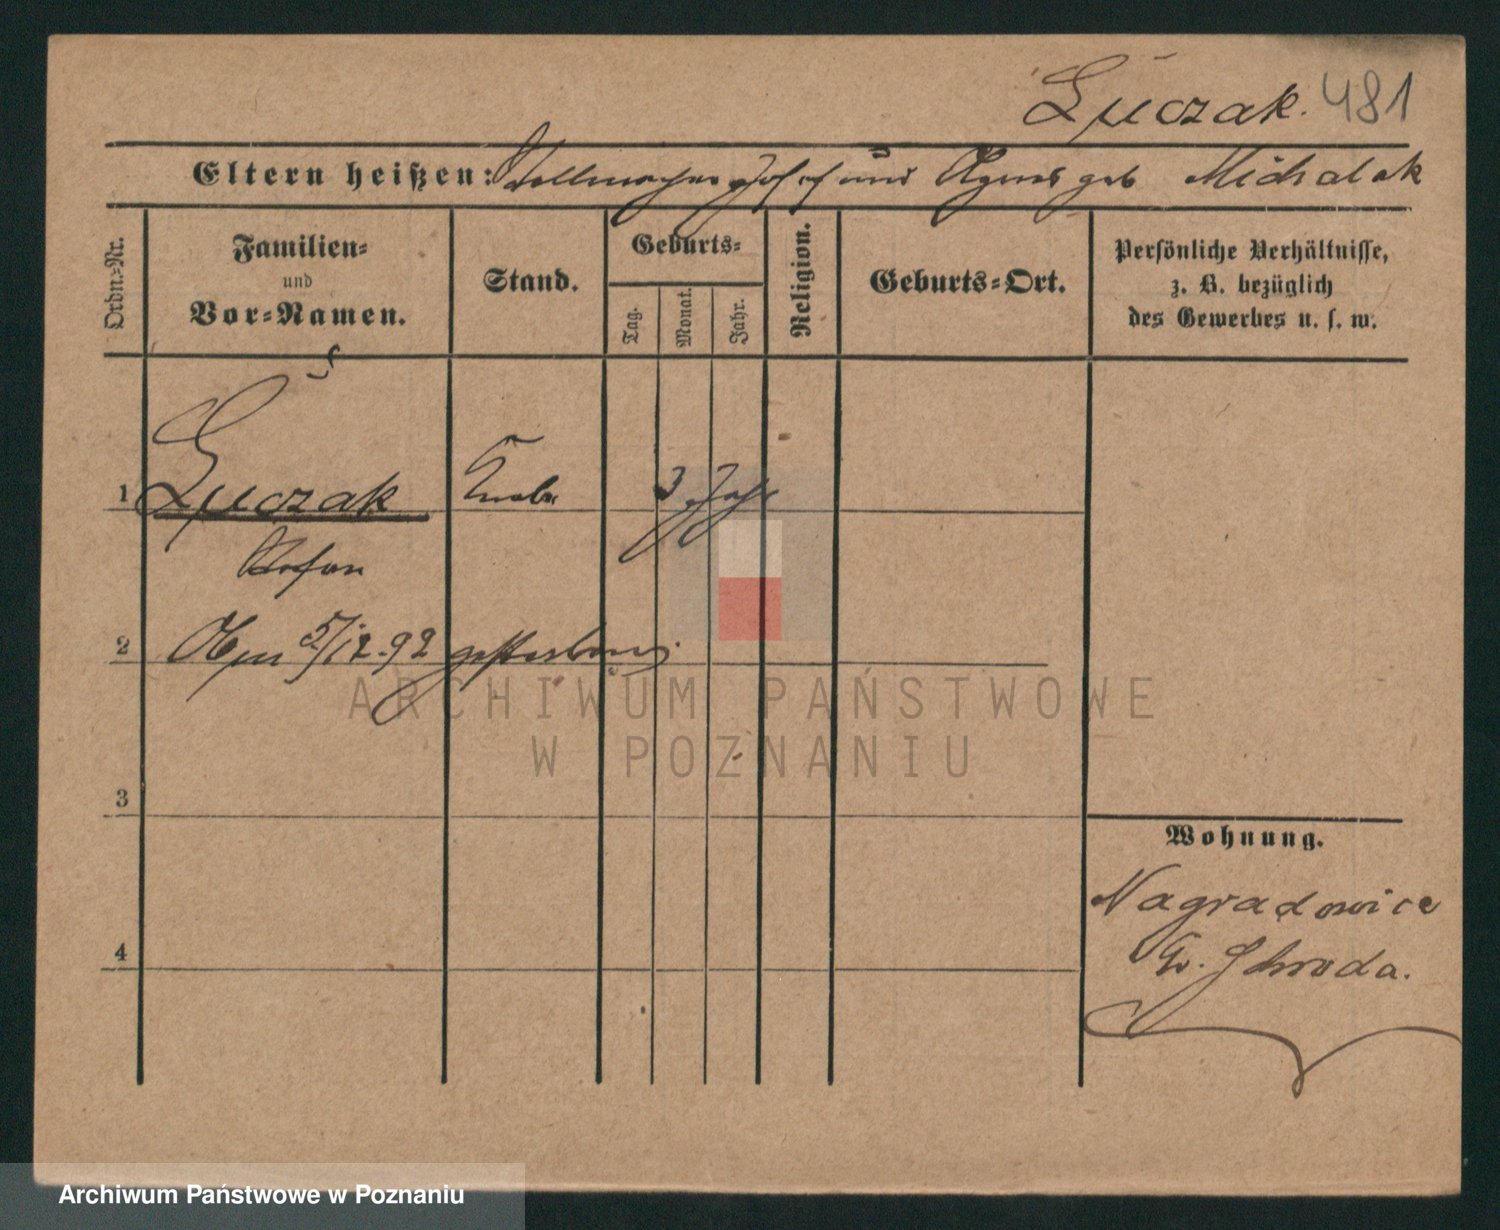 Łuczak. 481
Eltern heißen: Stellmacher Josef und Agnes geb Michalak
Ordn.-Nr.
Familien-
und
Vor-Namen.
Stand.
Geburts-
Tag.
Monat.
Jahr.
Religion.
Geburts-Ort.
Persönliche Verhältnisse,
z. B. bezüglich
des Gewerbes u. s. w.
1 Łuczak Knabe 3 Jahr
Stefan
2 am 5/12.92 gestorben
3
4
Wohnung.
Nagradowice
Kr. Schroda.
ARCHIWUM PAŃSTWOWE
W POZNANIU
Archiwum Państwowe w Poznaniu